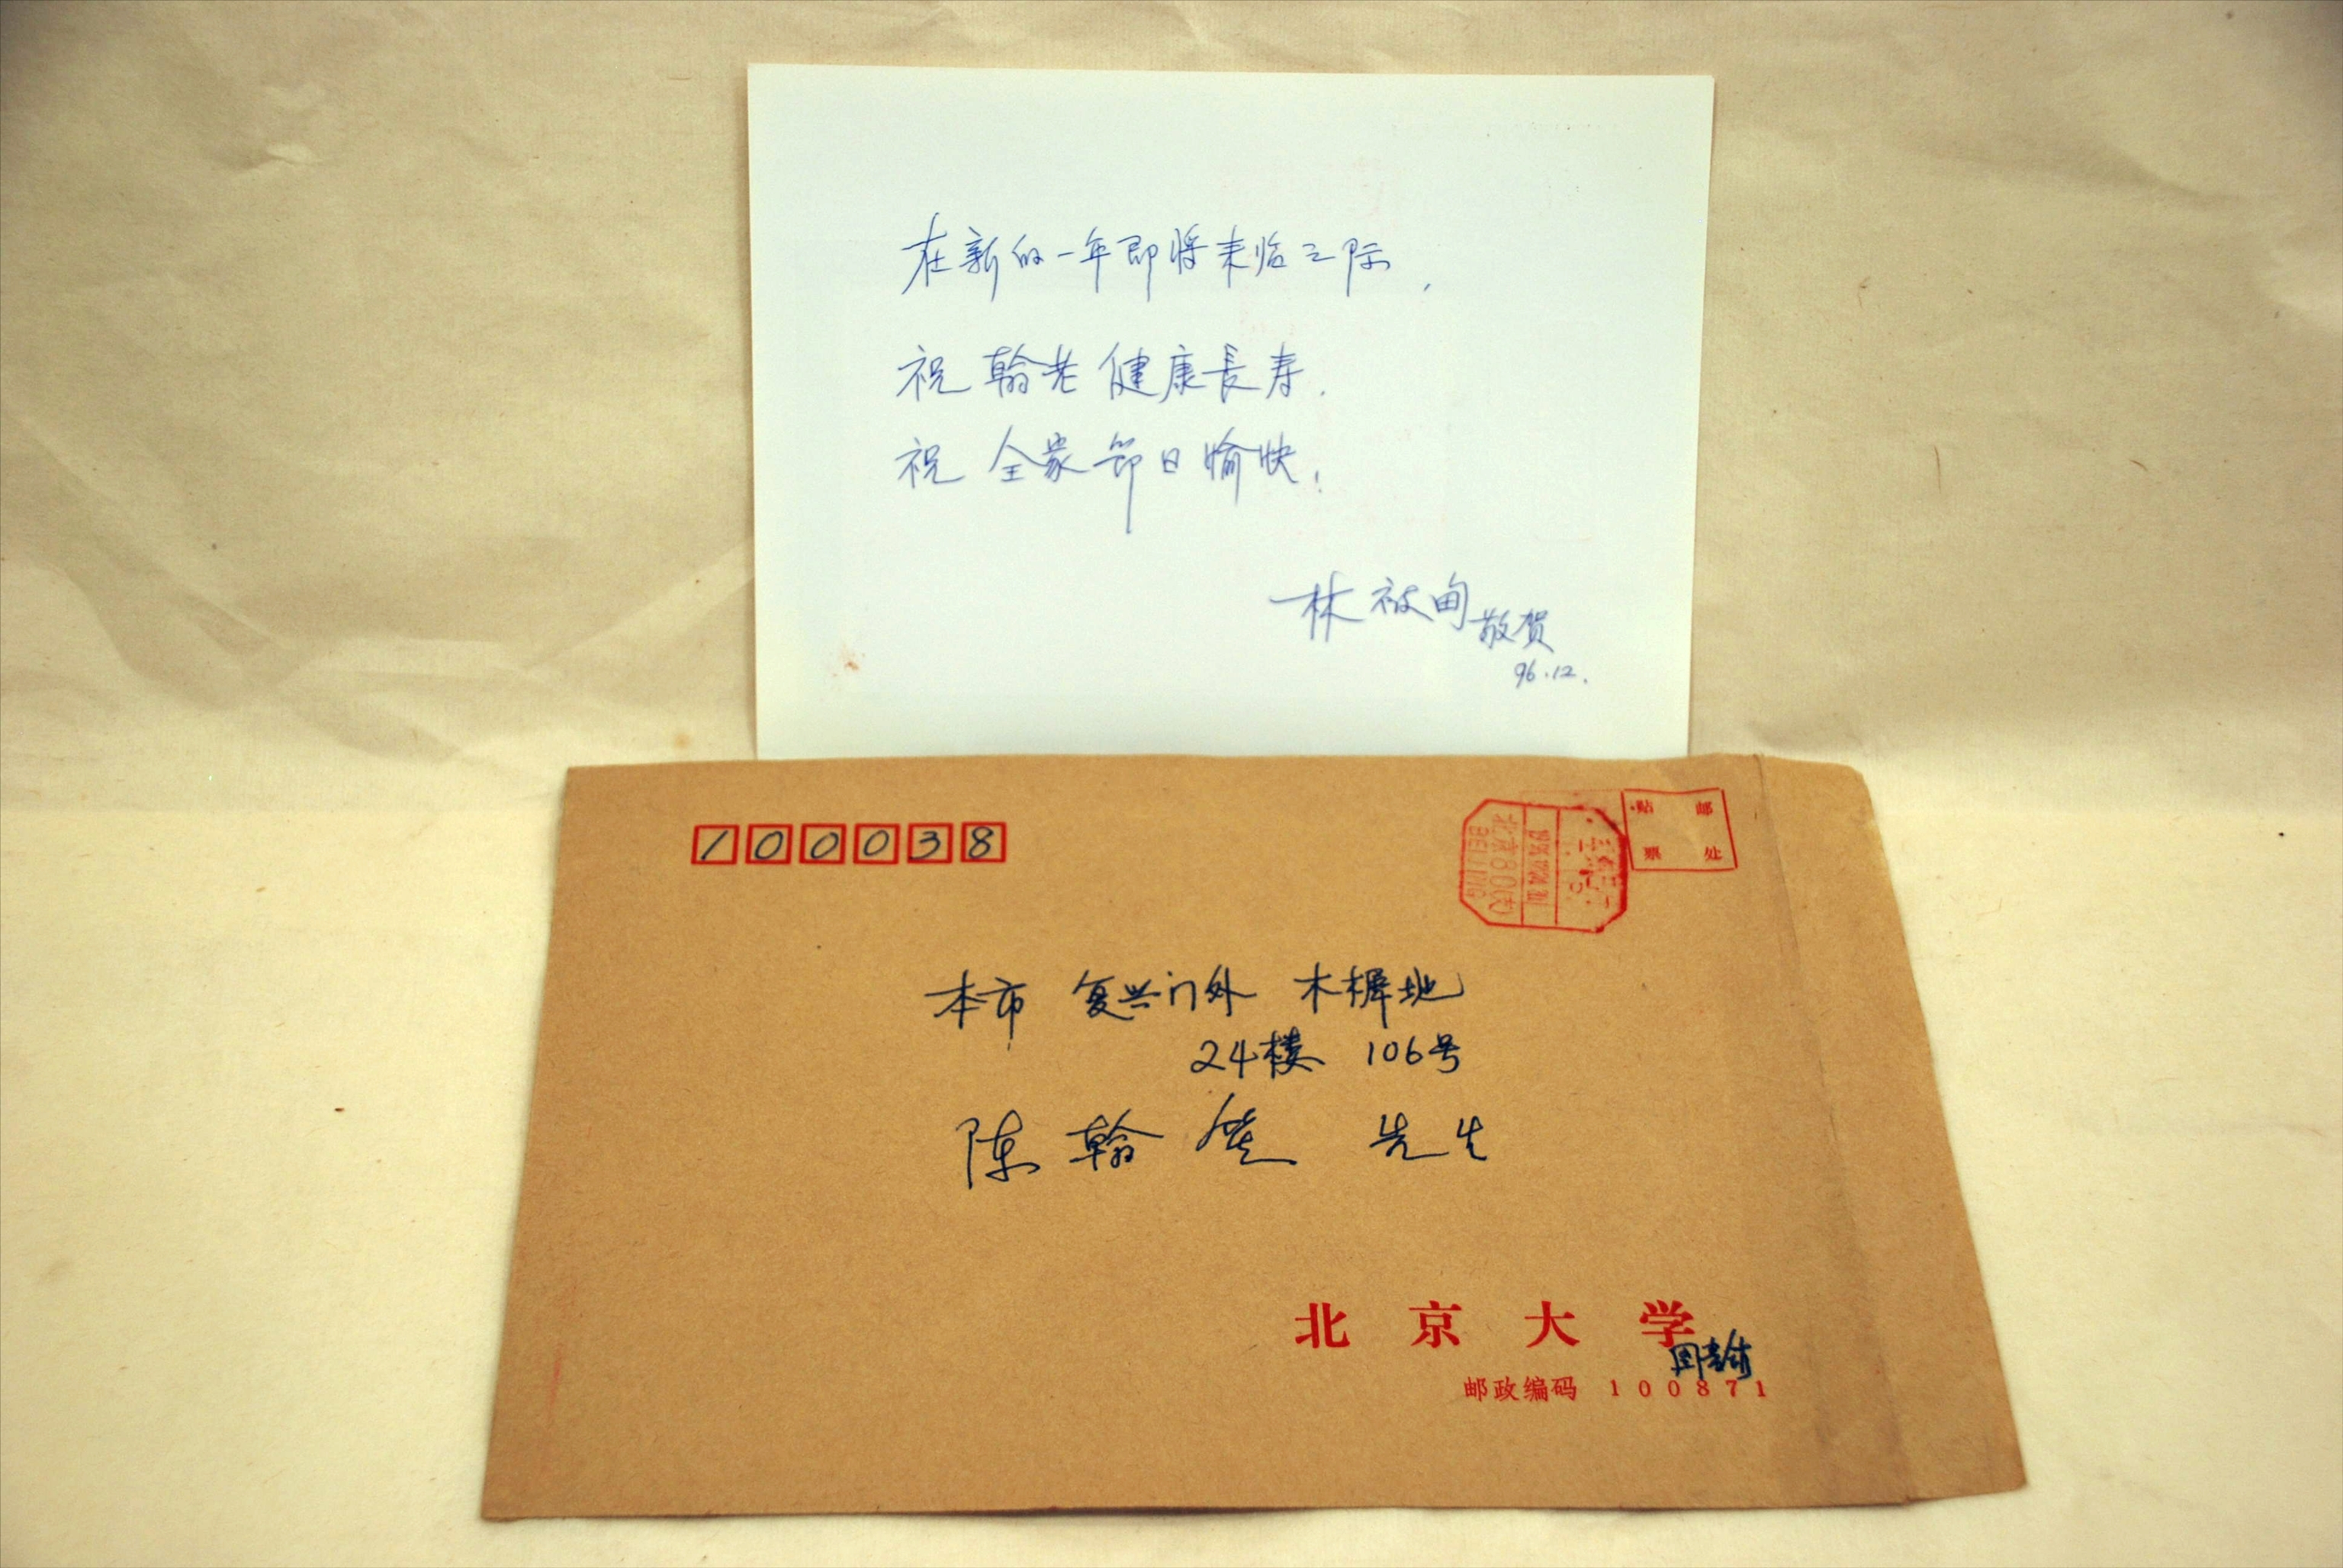 在新的一年即将来临之际，
祝 翰老 健康長寿.
祝 全家 節日愉快!
林被甸 敬贺
96.12.
100038
贴 邮
票 处
北京800支
BEIJING
本市 复兴门外 木樨地
24楼 106号
陈翰笙 先生
北京大学
邮政编码 100871